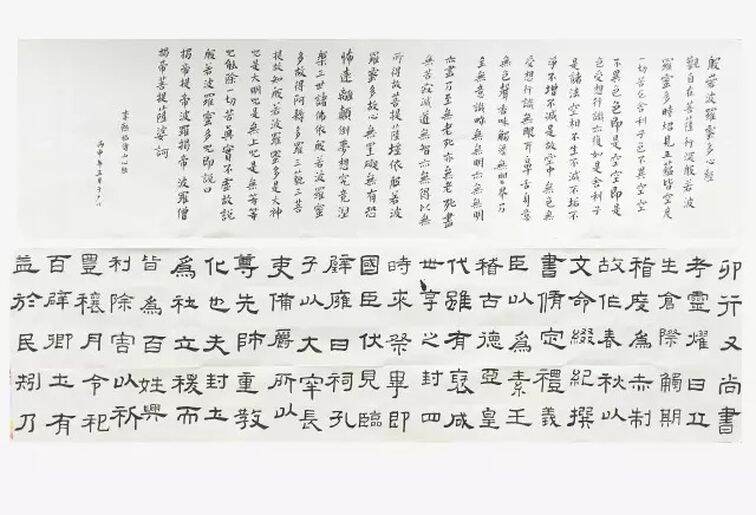 般若波羅蜜多心經
觀自在菩薩行深般若波
羅蜜多時照見五蘊皆空度
一切苦厄舍利子色不異空空
不異色色即是空空即是
色受想行識亦復如是舍利子
是諸法空相不生不滅不垢不
淨不增不減是故空中無色無
受想行識無眼耳鼻舌身意
無色聲香味觸法無眼界乃
至無意識界無無明亦無無明
盡乃至無老死亦無老死盡
無苦寂滅道無智亦無得以無
所得故菩提薩埵依般若波
羅蜜多故心無罣礙無有恐
怖遠離顛倒夢想究竟涅
槃三世諸佛依般若波羅蜜
多故得阿耨多羅三藐三菩
提故知般若波羅蜜多是大神
咒是大明咒是無上咒是無等等
咒能除一切苦真實不虛故說
般若波羅蜜多咒即說曰
揭帝揭帝波羅揭帝波羅僧
揭帝菩提薩婆訶
心經
丙申年
卯行又尚書
考靈燿曰丘
生倉際觸期
稽度為赤制
故作春秋以
文命綴紀撰
書脩定禮義
臣以為素王
稽古德亞皇
代雖有褒成
世享之封四
時來祭畢即
國臣伏見臨
璧雍日祠孔
子以大牢長
吏備爵所以
尊先師重教
化也夫封土
為社立稷而
皆為百姓興
利除害以祈
豐穰月令祀
百辟卿士有
益於民矧乃